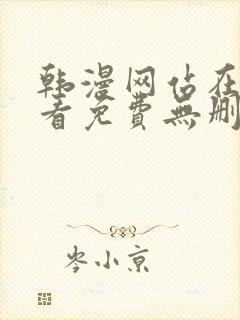 韩漫网站在
看免費無删
岑小京